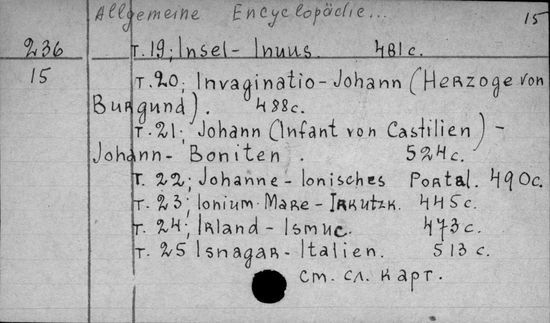 Allgemeine Encyclopädie... 15
236 т.19; Insel - Inuus. 481 с.
15 т.20; Invaginatio - Johann (Herzoge von
Burgund). 488 с.
т.21; Johann (Infant von Castilien) -
Johann - Boniten. 524 с.
т. 22; Johanne - Ionisches Portal. 490 с.
т. 23; Ionium Mare - Irkutzk. 445 с.
т. 24; Irland - Ismuc. 473 с.
т. 25 Isnagar - Italien. 513 с.
см. сл. карт.